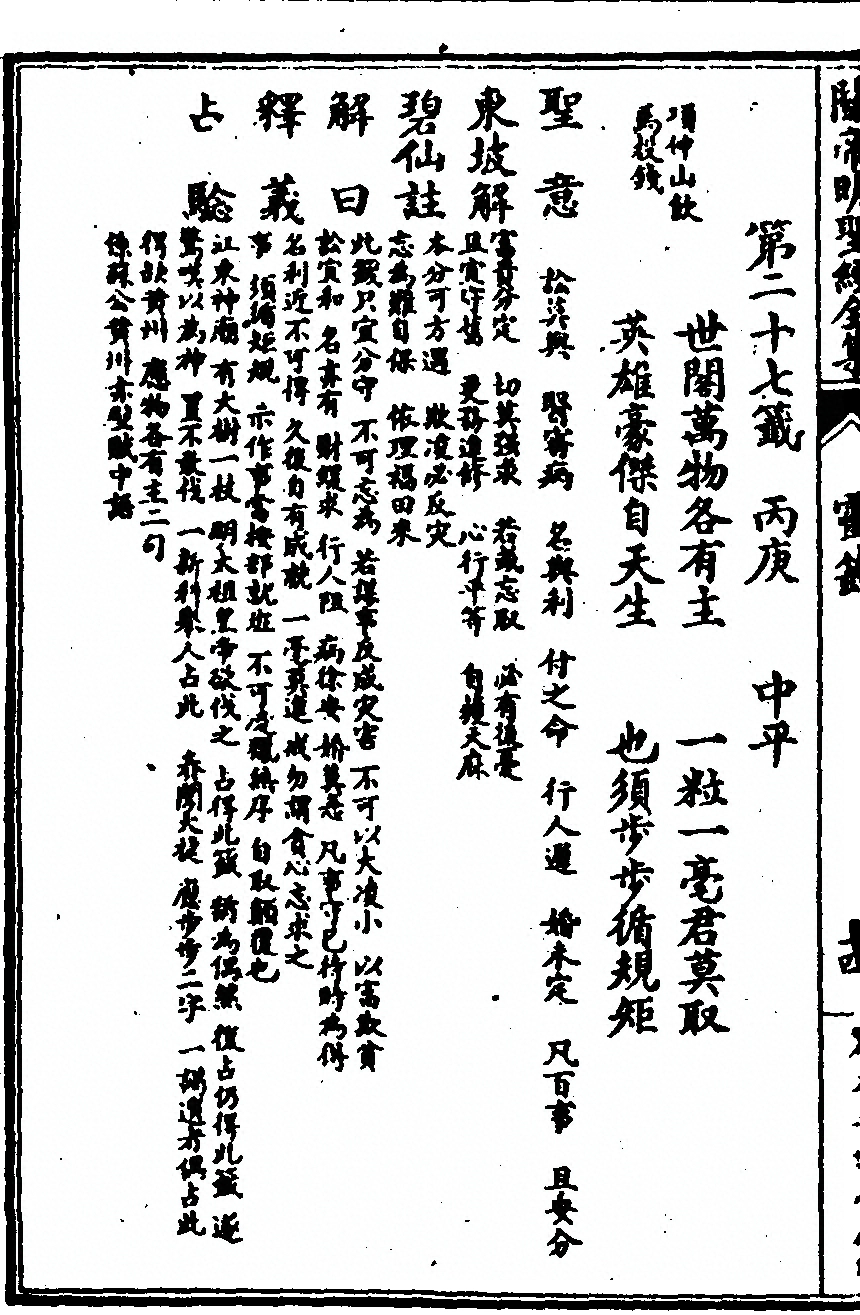 關帝明聖經全集
靈籤
第二十七籤 丙庚 中平
項仲山飲
馬投錢
世間萬物各有主 一粒一毫君莫取
英雄豪傑自天生 也須步步循規矩
聖意 訟漸興 醫審病 名與利 付之命 行人遲 婚未定 凡百事 且安分
東坡解 富貴分定 切莫強求 若萌妄取 必有後憂
且宜守舊 更務進修 心行平等 自獲天庥
碧仙註 本分可方遇 欺凌必反灾
妄為難自保 依理福田來
解曰 此籤只宜分守 不可妄為 若謀事反成灾害 不可以大凌小 以富欺貧
訟宜和 名亦有 財緩求 行人阻 病徐安 婚莫急 凡事守己待時為得
釋義 名利近不可得 久後自有成就 一毫莫道 戒勿謂貪心妄求之
事 須循矩規 示作事當按部就班 不可凌獵無序 自取顛覆也
占驗 江東神廟 有大樹一枝 明太祖皇帝欲伐之 占得此籤 猶為偶然 復占仍得此籤 遂
驚嘆以為神 置不敢伐 一新科舉人占此 春闈大挺 應步步二字 一謫遷者偶占此
得放黃州 應物各有主二句
係蘇公黃州赤壁賦中語